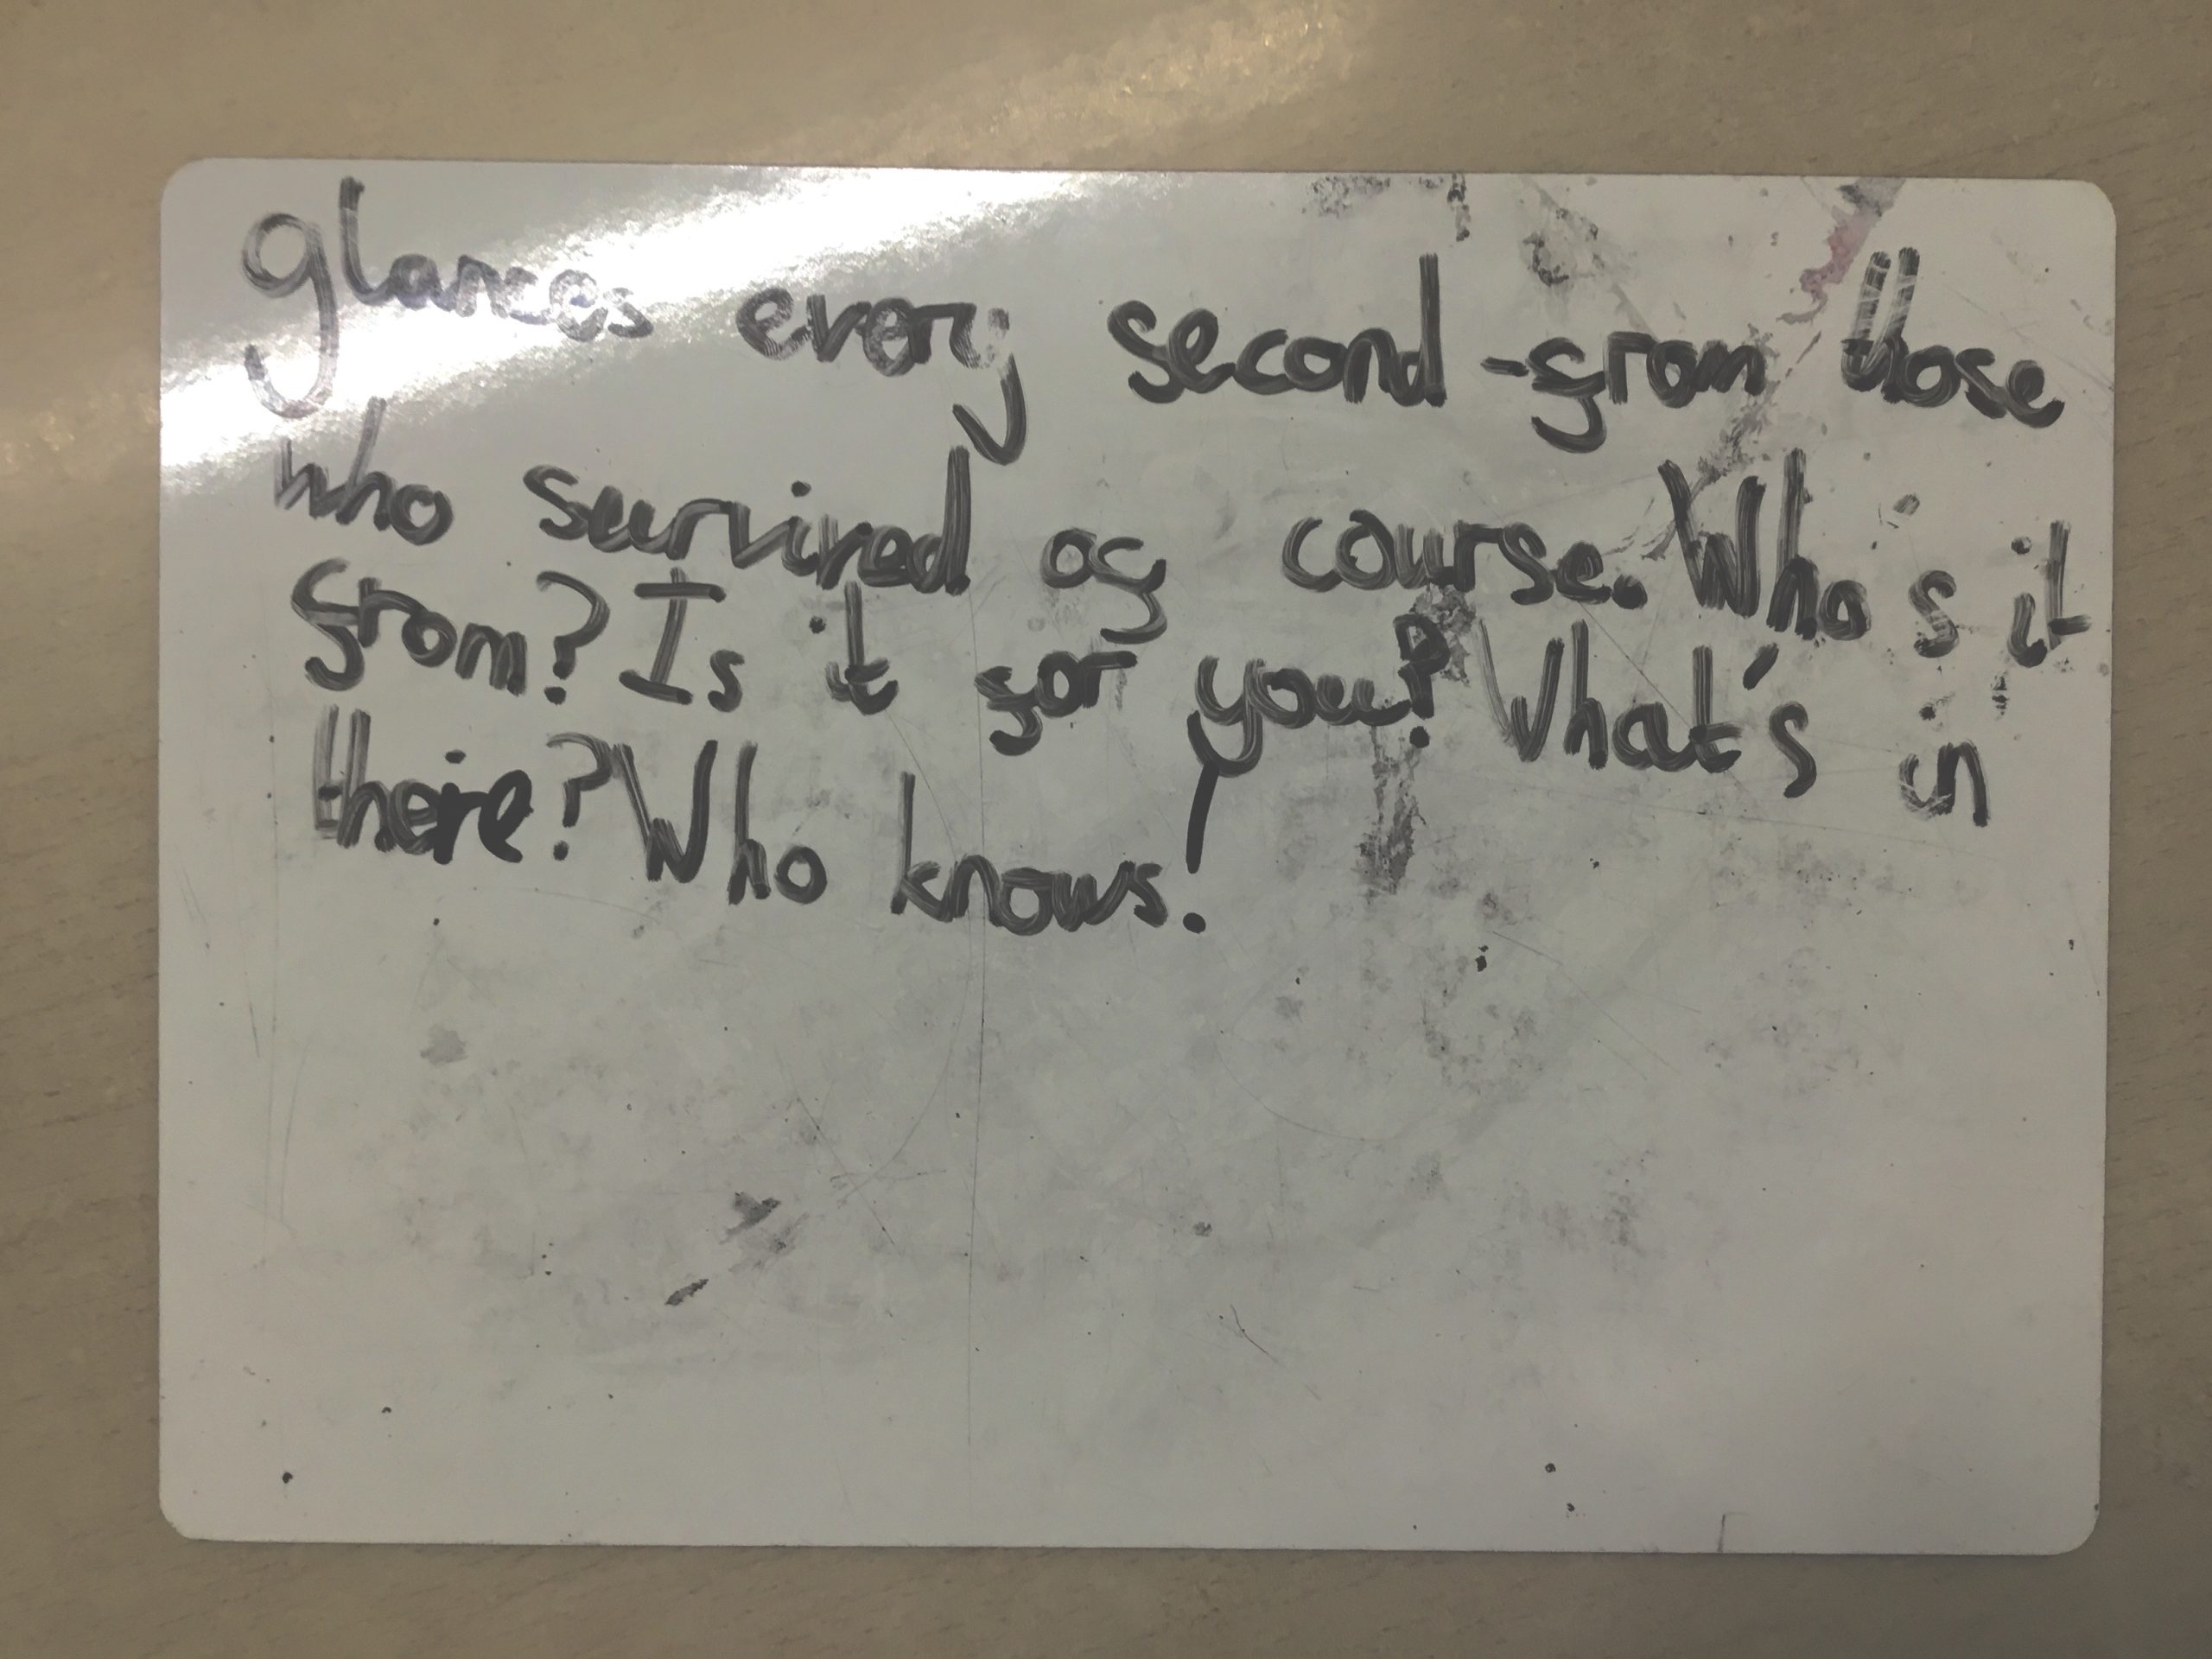 glances every second -from those
who survived of course. Who's it
from? Is it for you? What's in
there? Who knows!